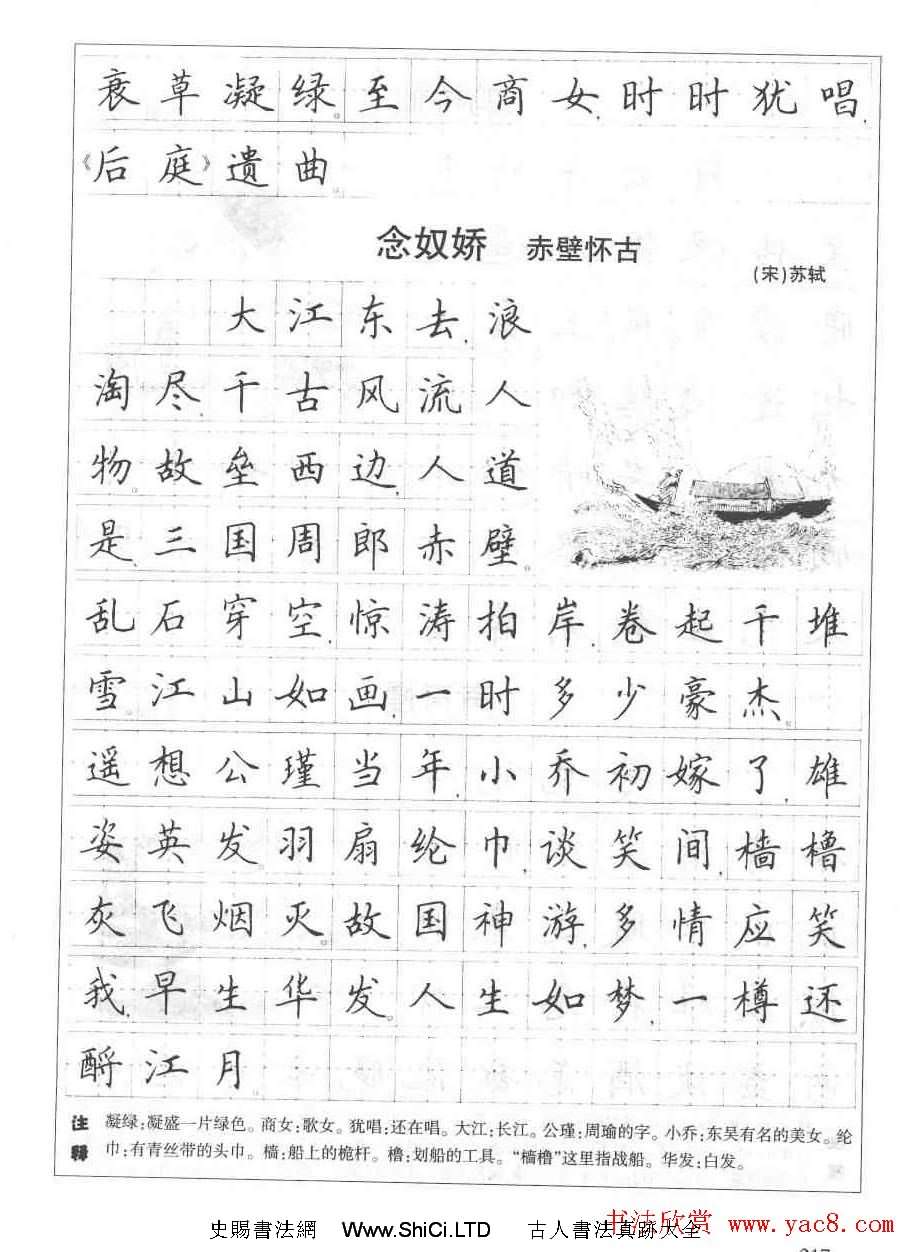 衰草凝绿。至今商女,时时犹唱,
《后庭》遗曲。
念奴娇 赤壁怀古
(宋)苏轼
大江东去,浪
淘尽,千古风流人
物。故垒西边,人道
是,三国周郎赤壁。
乱石穿空,惊涛拍岸,卷起千堆
雪。江山如画,一时多少豪杰。
遥想公瑾当年,小乔初嫁了,雄
姿英发。羽扇纶巾,谈笑间,樯橹
灰飞烟灭。故国神游,多情应笑
我,早生华发。人生如梦,一樽还
酹江月
注释 凝绿:凝盛一片绿色。商女:歌女。犹唱:还在唱。大江:长江。公瑾:周瑜的字。小乔:东吴有名的美女。纶
巾:有青丝带的头巾。樯:船上的桅杆。橹:划船的工具。“樯橹”这里指战船。华发:白发。
书法欣赏 www.yac8.com
史賜書法網 Www.ShiCi.LTD 古人書法真跡大全